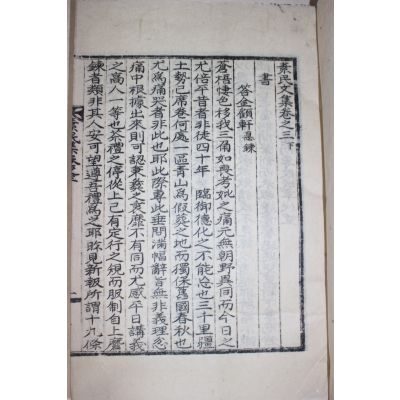 泰民文集卷之三下
書
答金顧軒思鍊
蒼梧悽色移我三角如喪考妣之痛元無朝野異同而今日之
尤倍平昔者非徒四十年 臨御德化之不能忘也三千里疆
土勢已席卷何處一區靑山爲假葬之地而獨保舊國春秋也
尤爲痛哭者非此也耶此際專此垂問滿幅辭旨無非義理忿
痛中根據出來則可認東葵之衰靡不有同而尤感平日講義
之高人一等也茶禮之停從上已有定行之規而服制自上麽
鍊者類非其人安可望遵吾禮爲之耶昨見新報所謂十九條